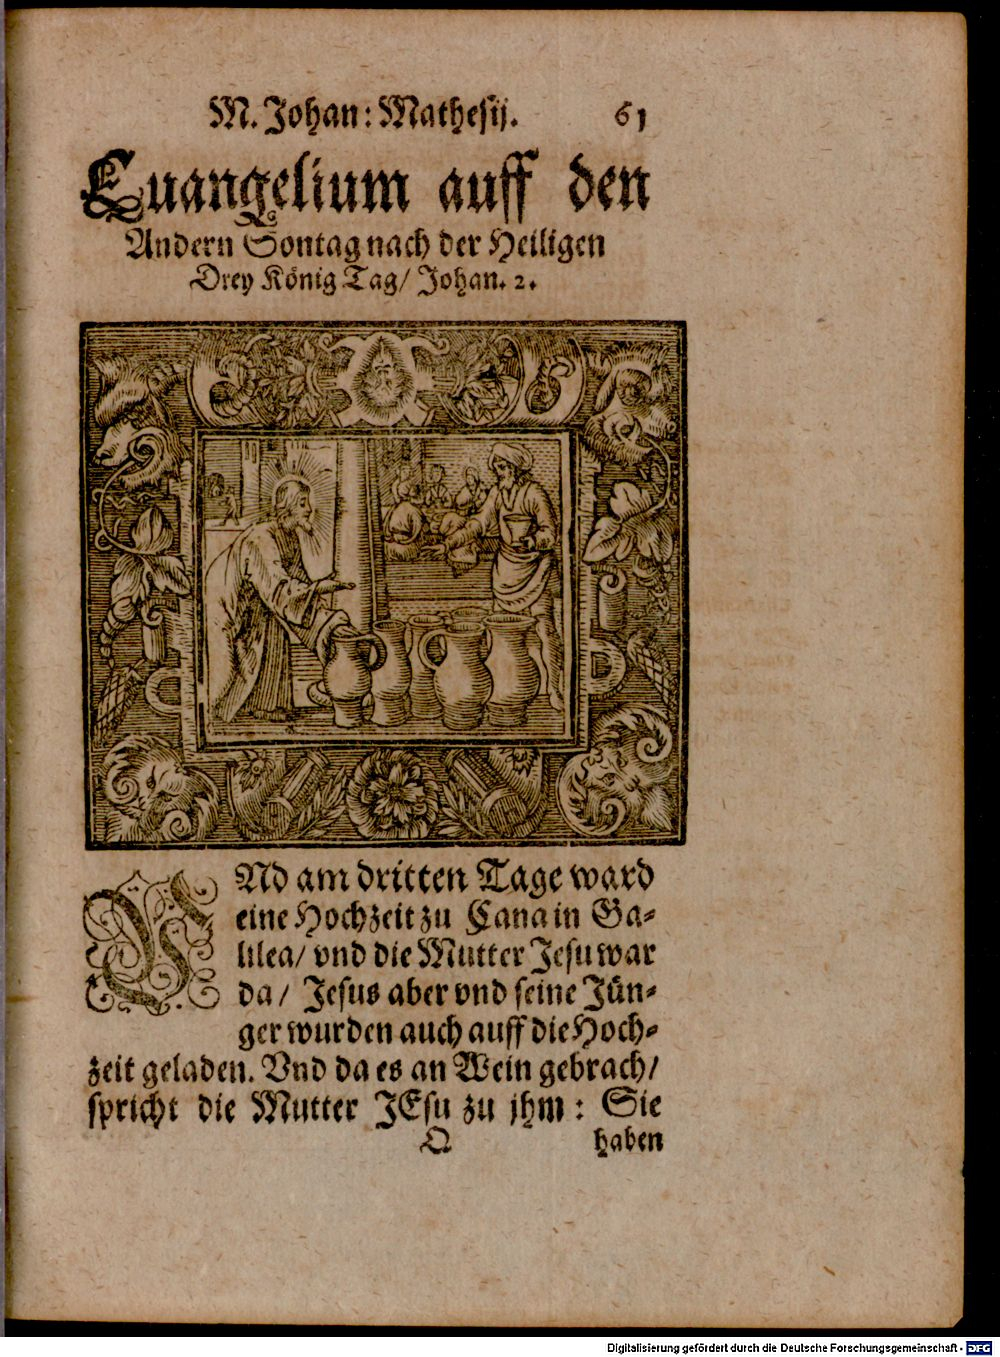 M. Johan: Mathesij. 61
Euangelium auff den
Andern Sontag nach der Heiligen
Drey König Tag/ Johan. 2.
VNd am dritten Tage ward
eine Hochzeit zu Cana in Ga-
lilea/ vnd die Mutter Jesu war
da/ Jesus aber vnd seine Jün-
ger wurden auch auff die Hoch-
zeit geladen. Vnd da es an Wein gebrach/
spricht die Mutter JEsu zu jhm: Sie
Q haben
Digitalisierung gefördert durch die Deutsche Forschungsgemeinschaft - DFG